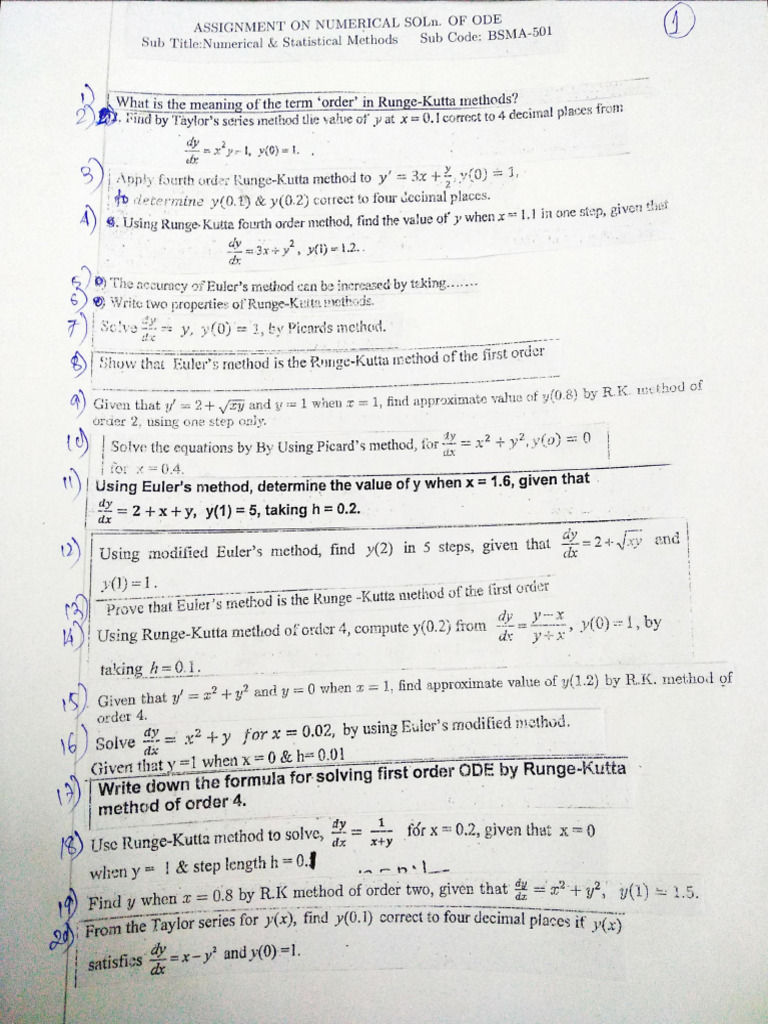 ASSIGNMENT ON NUMERICAL SOLn. OF ODE
1
Sub Title:Numerical & Statistical Methods Sub Code: BSMA-501
1) What is the meaning of the term 'order' in Runge-Kutta methods?
2) Find by Taylor's series method the value of y at x = 0.1 correct to 4 decimal places from
dy/dx = x²y - 1, y(0) = 1.
3) Apply fourth order Runge-Kutta method to y' = 3x + y/2, y(0) = 1,
to determine y(0.1) & y(0.2) correct to four decimal places.
4) Using Runge-Kutta fourth order method, find the value of y when x = 1.1 in one step, given that
dy/dx = 3x + y², y(1) = 1.2.
5) The accuracy of Euler's method can be increased by taking.......
6) Write two properties of Runge-Kutta methods.
7) Solve dy/dx = y, y(0) = 1, by Picards method.
8) Show that Euler's method is the Runge-Kutta method of the first order
9) Given that y' = 2 + √xy and y = 1 when x = 1, find approximate value of y(0.8) by R.K. method of
order 2, using one step only.
10) Solve the equations by By Using Picard's method, for dy/dx = x² + y², y(o) = 0
for x = 0.4.
11) Using Euler's method, determine the value of y when x = 1.6, given that
dy/dx = 2 + x + y, y(1) = 5, taking h = 0.2.
12) Using modified Euler's method, find y(2) in 5 steps, given that dy/dx = 2 + √xy and
y(1) = 1.
13) Prove that Euler's method is the Runge -Kutta method of the first order
14) Using Runge-Kutta method of order 4, compute y(0.2) from dy/dx = y-x/y+x, y(0) = 1, by
taking h = 0.1.
15) Given that y' = x² + y² and y = 0 when x = 1, find approximate value of y(1.2) by R.K. method of
order 4.
16) Solve dy/dx = x² + y for x = 0.02, by using Euler's modified method.
Given that y =1 when x = 0 & h= 0.01
17) Write down the formula for solving first order ODE by Runge-Kutta
method of order 4.
18) Use Runge-Kutta method to solve, dy/dx = 1/x+y for x = 0.2, given that x = 0
when y = 1 & step length h = 0.1
19) Find y when x = 0.8 by R.K method of order two, given that dy/dx = x² + y², y(1) = 1.5.
20) From the Taylor series for y(x), find y(0.1) correct to four decimal places if y(x)
satisfies dy/dx = x - y² and y(0) =1.